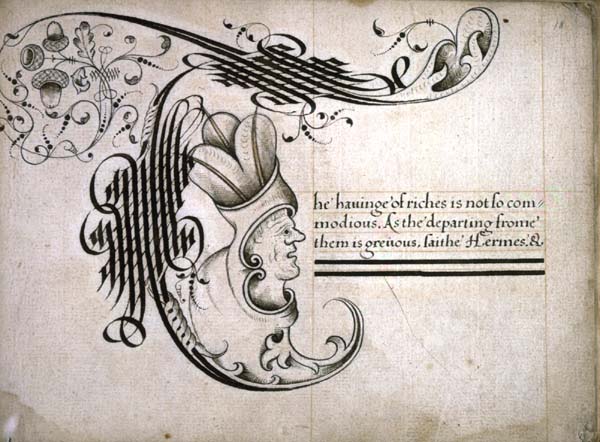 The hauinge of riches is not so com=
modious. As the departing frome
them is greuous, saithe Hermes. &